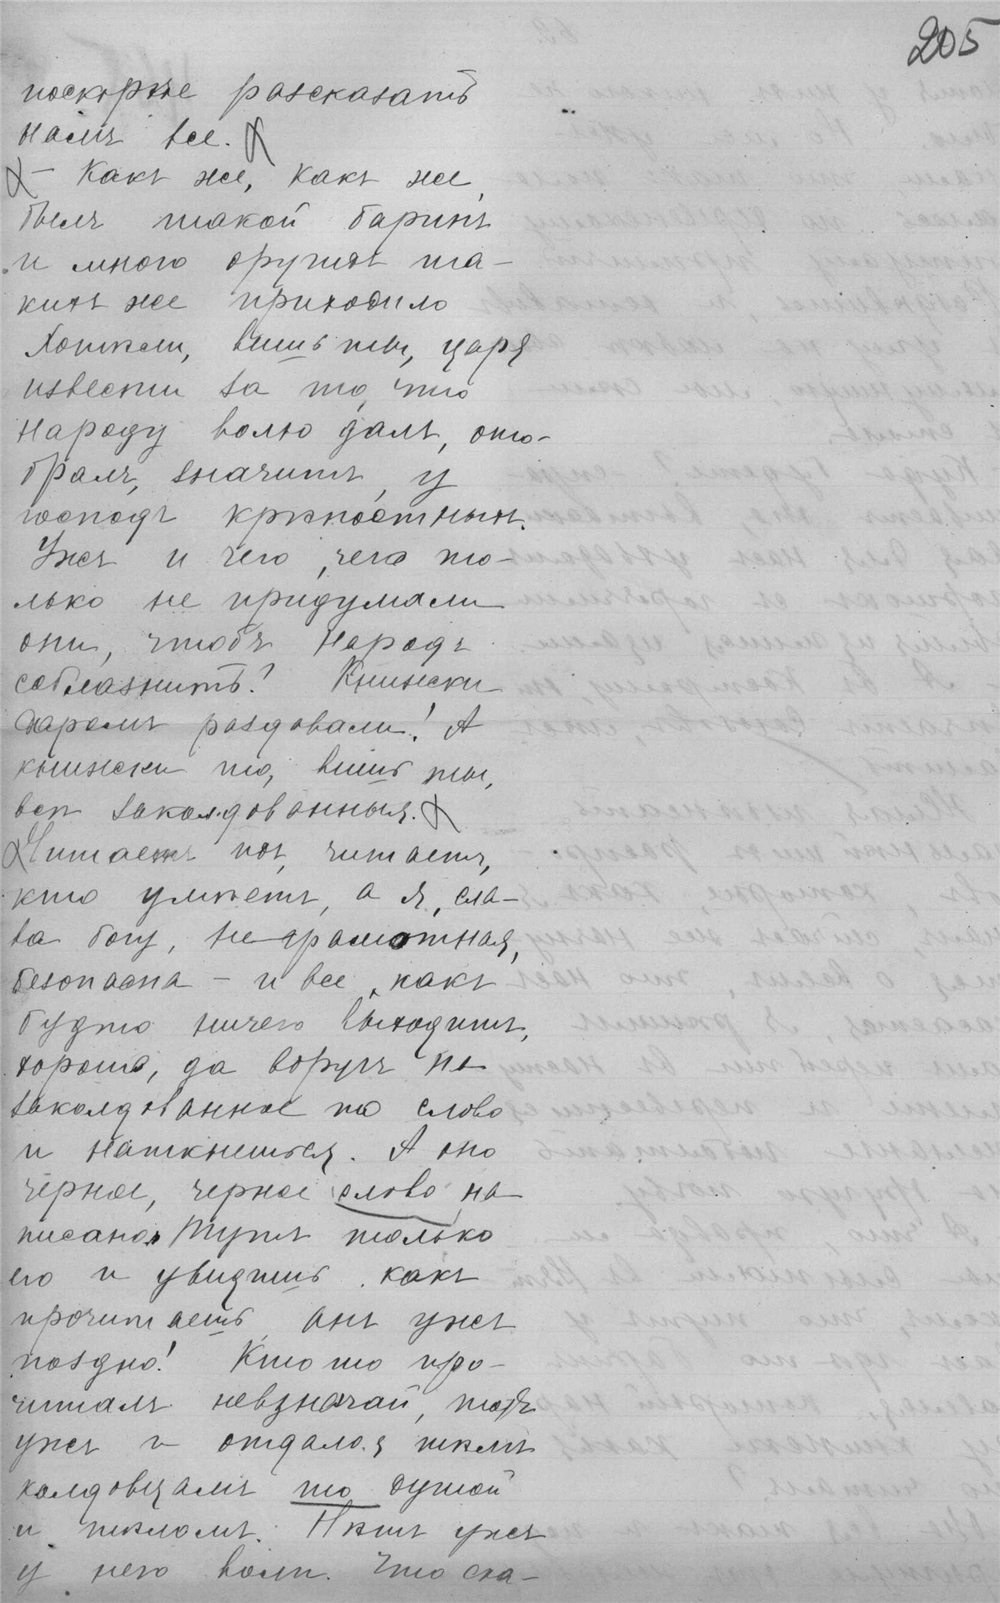 205
поскорѣе разсказать
намъ все.
– Какъ же, какъ же,
былъ такой баринъ
и много другихъ та-
кихъ же приходило
Хотѣли, вишь ты, царя
извести за то, что
народу волю далъ, ото-
бралъ, значитъ, у
господъ крѣпостныхъ.
Ужъ и чего, чего то-
лько не придумали
они, чтобъ народъ
соблазнить! Книжки
даромъ раздовали! А
книжки то, вишь ты,
всѣ заколдованныя.
Читаетъ ихъ, читаетъ,
кто умѣетъ, а я, сла-
ва богу, не грамотная,
безопасна – и все, какъ
будто ничего выходитъ,
хорошо, да вдругъ на
заколдованное то слово
и наткнешься. А оно
черное, черное слово на-
писано. Тутъ только
его и увидишь, какъ
прочитаешь, анъ ужъ
поздно! Кто то про-
читалъ невзначай, тотъ
ужъ и отдался тѣмъ
колдовцамъ то душой
и тѣломъ. Нѣтъ ужъ
у него воли. Что ска-